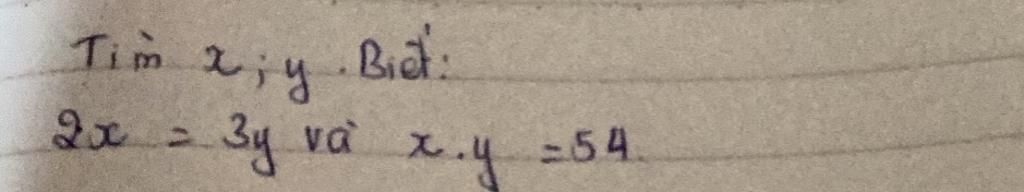 Tìm x; y. Biết:
2x = 3y và x.y = 54.